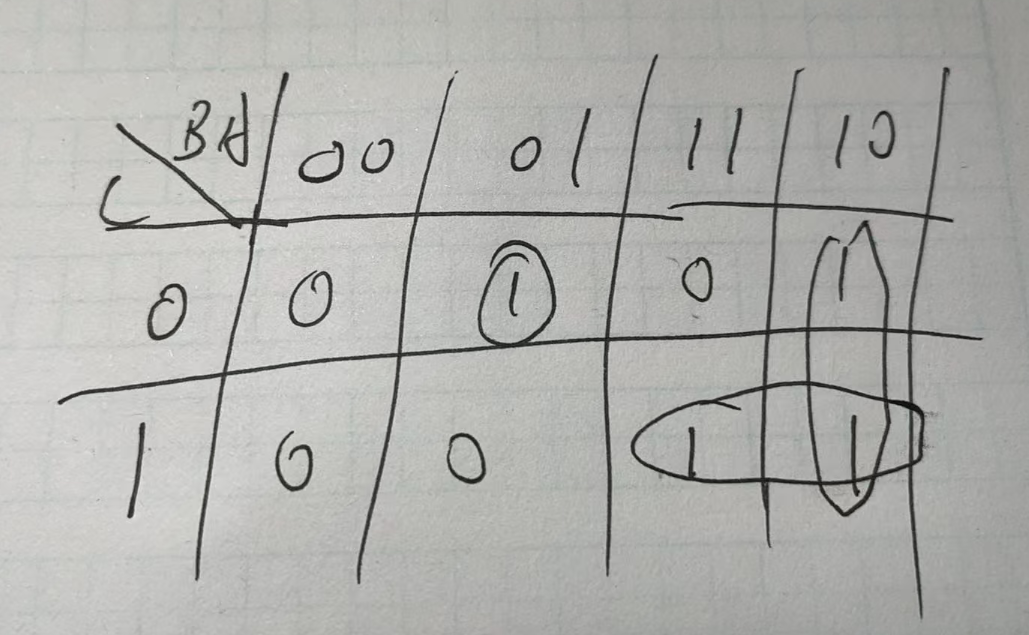 BA 00 01 11 10
C
0 0 1 0 1
1 0 0 1 1